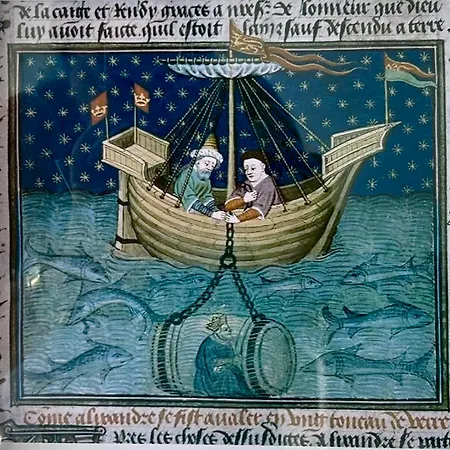 de la caige et rendy graces a nrẽsr̃ de lonneur que dieu
luy avoit faicte quil estoit sain et sauf descendu a terre
Come alixandre se fist avaler en ung toneau de verre
Pres les choses dessusdictes Alixandre se part